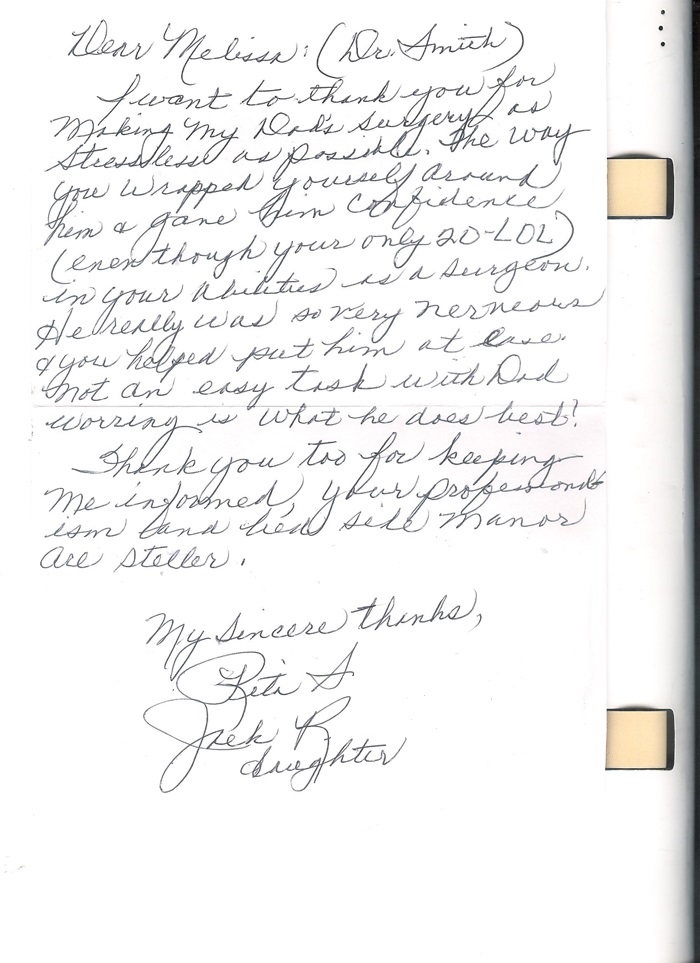 Dear Melissa: (Dr. Smith)
I want to thank you for
Making My Dad's surgery as
Stressless as possible. The way
you wrapped yourself around
him & gave him confidence
(even though your only 20-LOL)
in your abilities as a surgeon.
He really was so very nerveous
& you helped put him at ease.
Not an easy task with Dad
worring is what he does best!
Thank you too for keeping
me informed, your professional-
ism (and bed side manor
are steller.
My Sincere thanks,
Rita S
Jack R.
daughter